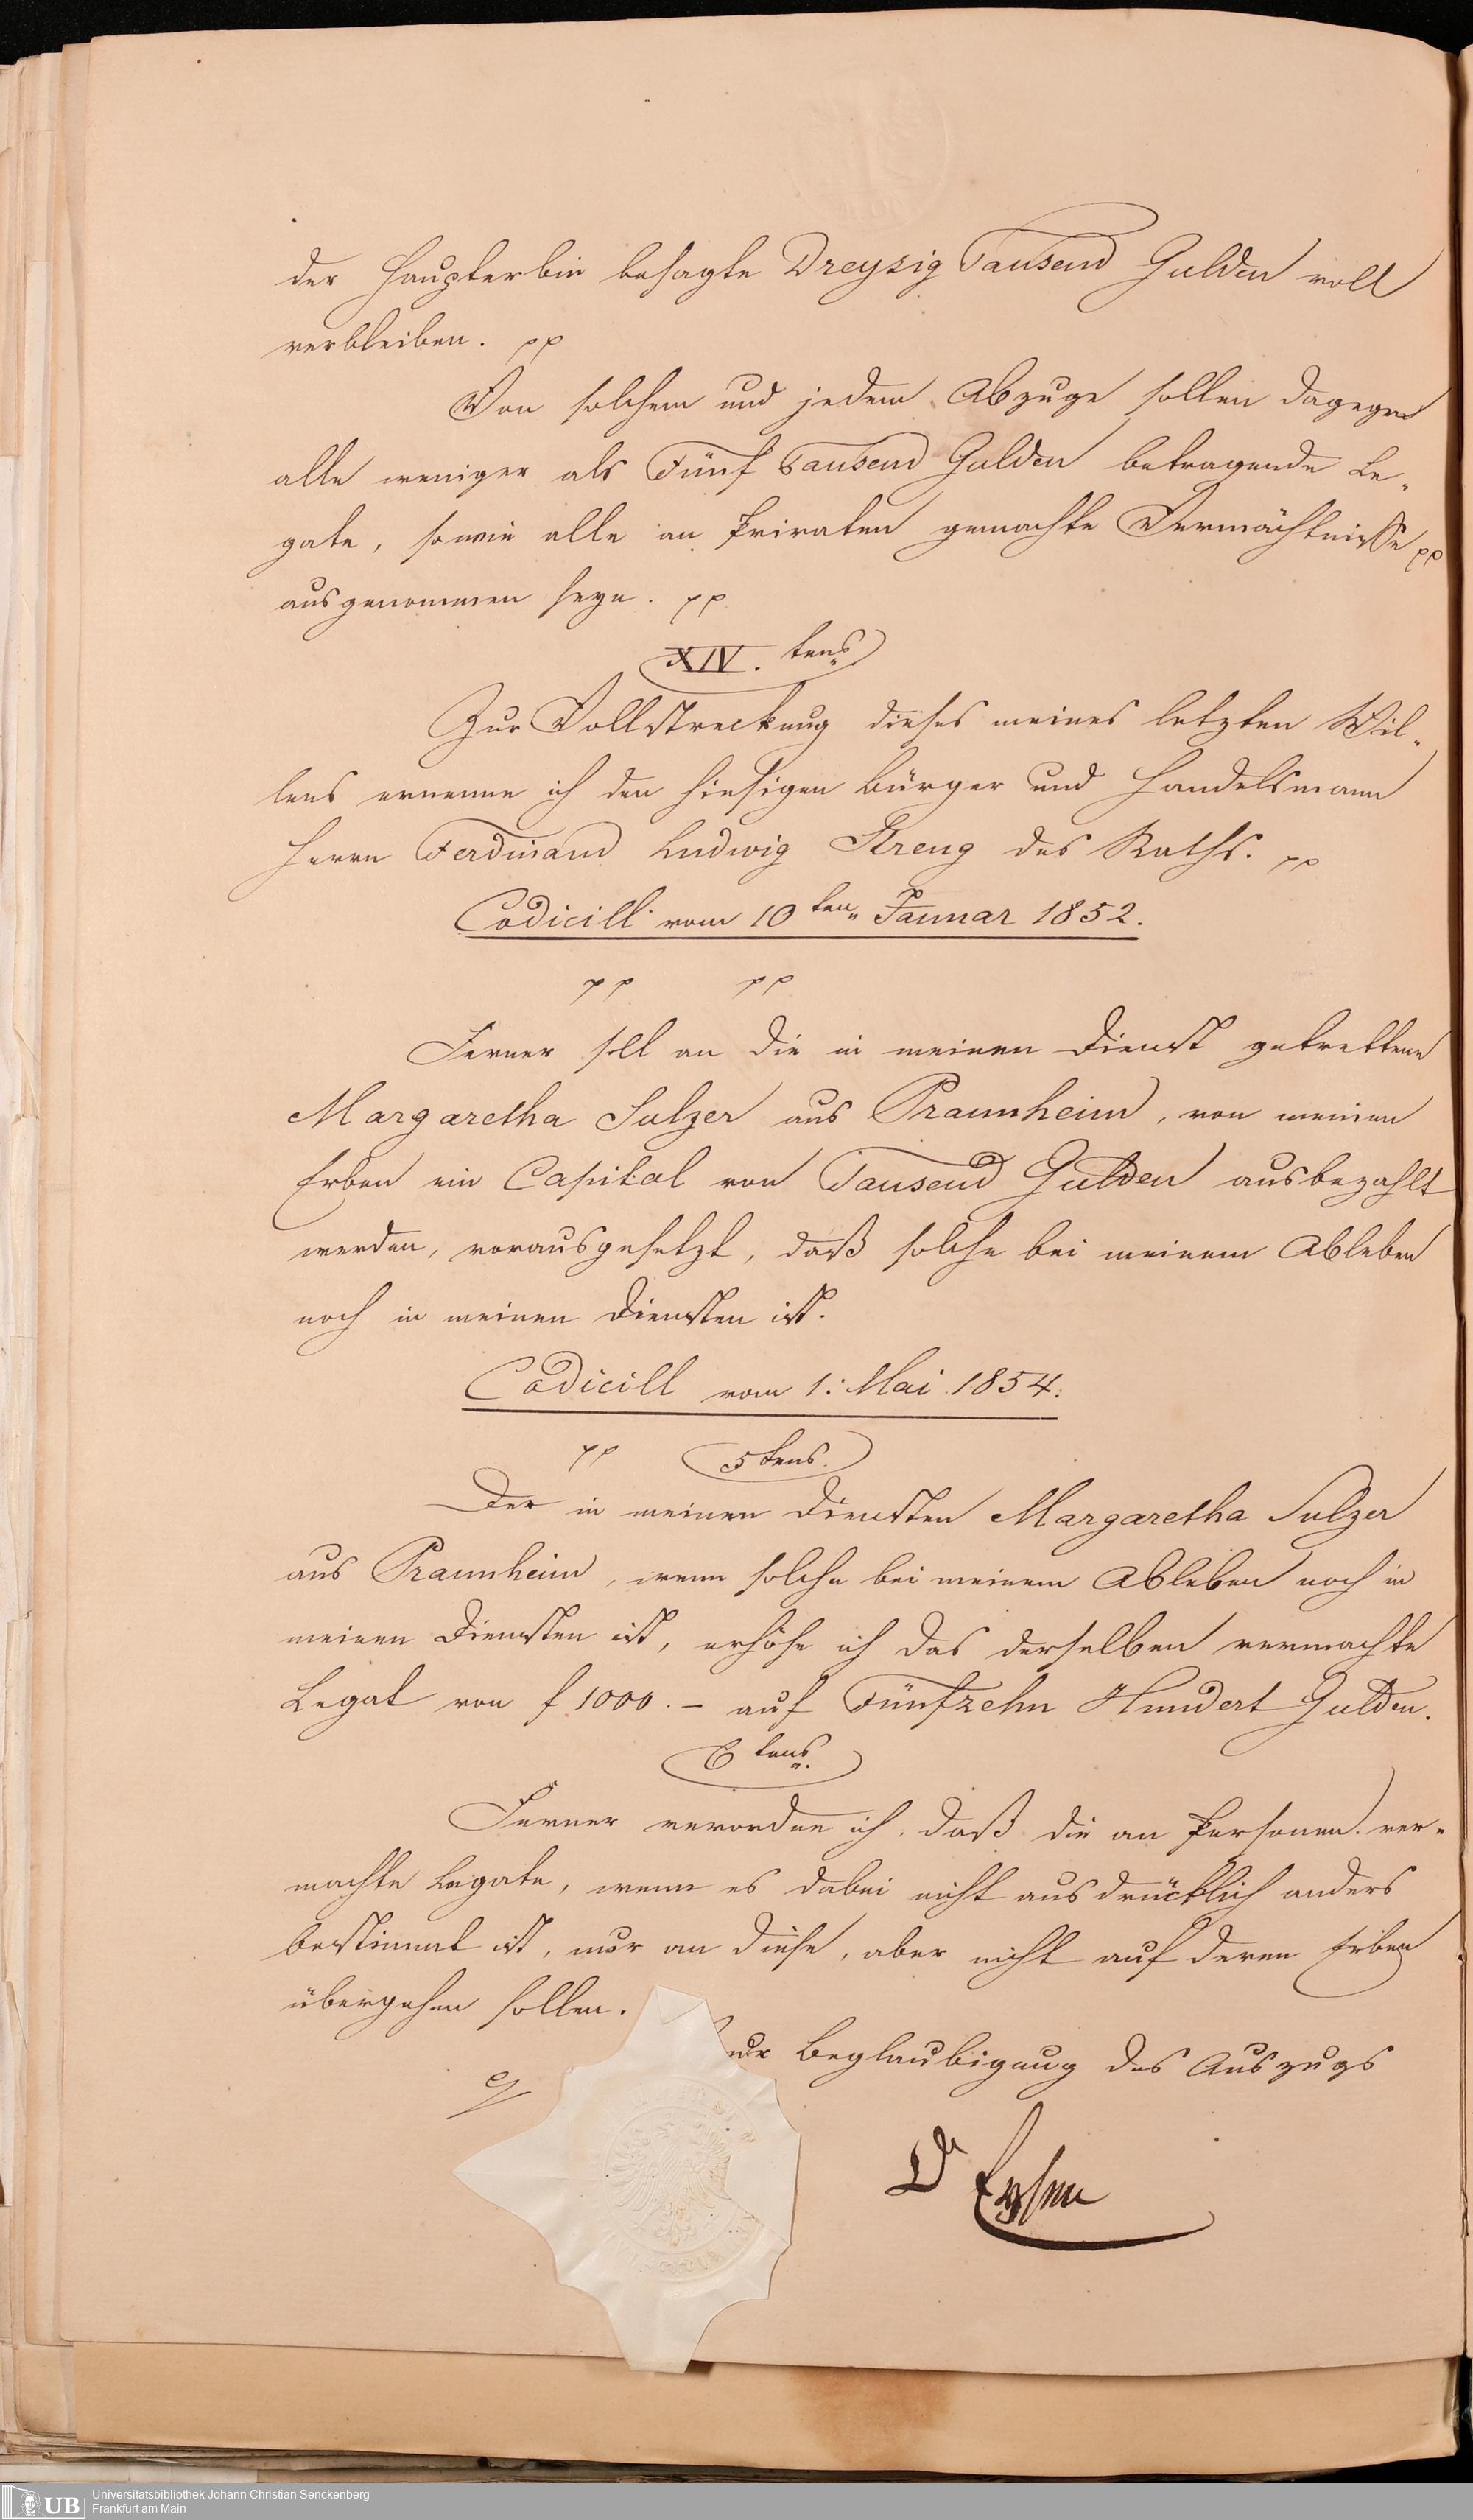 der Haupterbin besagte Dreyzig Tausend Gulden voll
verbleiben. pp
Von solchem und jedem Abzuge sollen dagegen
alle weniger als Fünf Tausend Gulden betragende Le-
gate, sowie alle an Privaten gemachte Vermächtnisse pp
ausgenommen seyn. pp
XIV. tens
Zur Vollstreckung dieses meines letzten Wil-
lens ernenne ich den hiesigen Bürger und Handelsmann
Herrn Ferdinand Ludwig Kreug des Raths. pp
Codicill vom 10ten Januar 1852.
pp pp
Ferner soll an die in meinen Dienst getrettene
Margaretha Sulzer aus Praunheim, von meinen
Erben ein Capital von Tausend Gulden ausbezahlt
werden, vorausgesetzt, daß solche bei meinem Ableben
noch in meinen Diensten ist.
Codicill vom 1: Mai 1854.
pp 5tens.
Der in meinen Diensten Margaretha Sulzer
aus Praunheim, wenn solche bei meinem Ableben noch in
meinen Diensten ist, erhöhe ich das derselben vermachte
Legat von f 1000. – auf Fünfzehn Hundert Gulden.
6tens.
Ferner verordne ich, daß die an Personen ver-
machte Legate, wenn es dabei nicht ausdrücklich anders
bestimmt ist, nur an diese, aber nicht auf deren Erben
übergehen sollen.
Zur Beglaubigung des Auszugs
Dr
Universitätsbibliothek Johann Christian Senckenberg
UB Frankfurt am Main